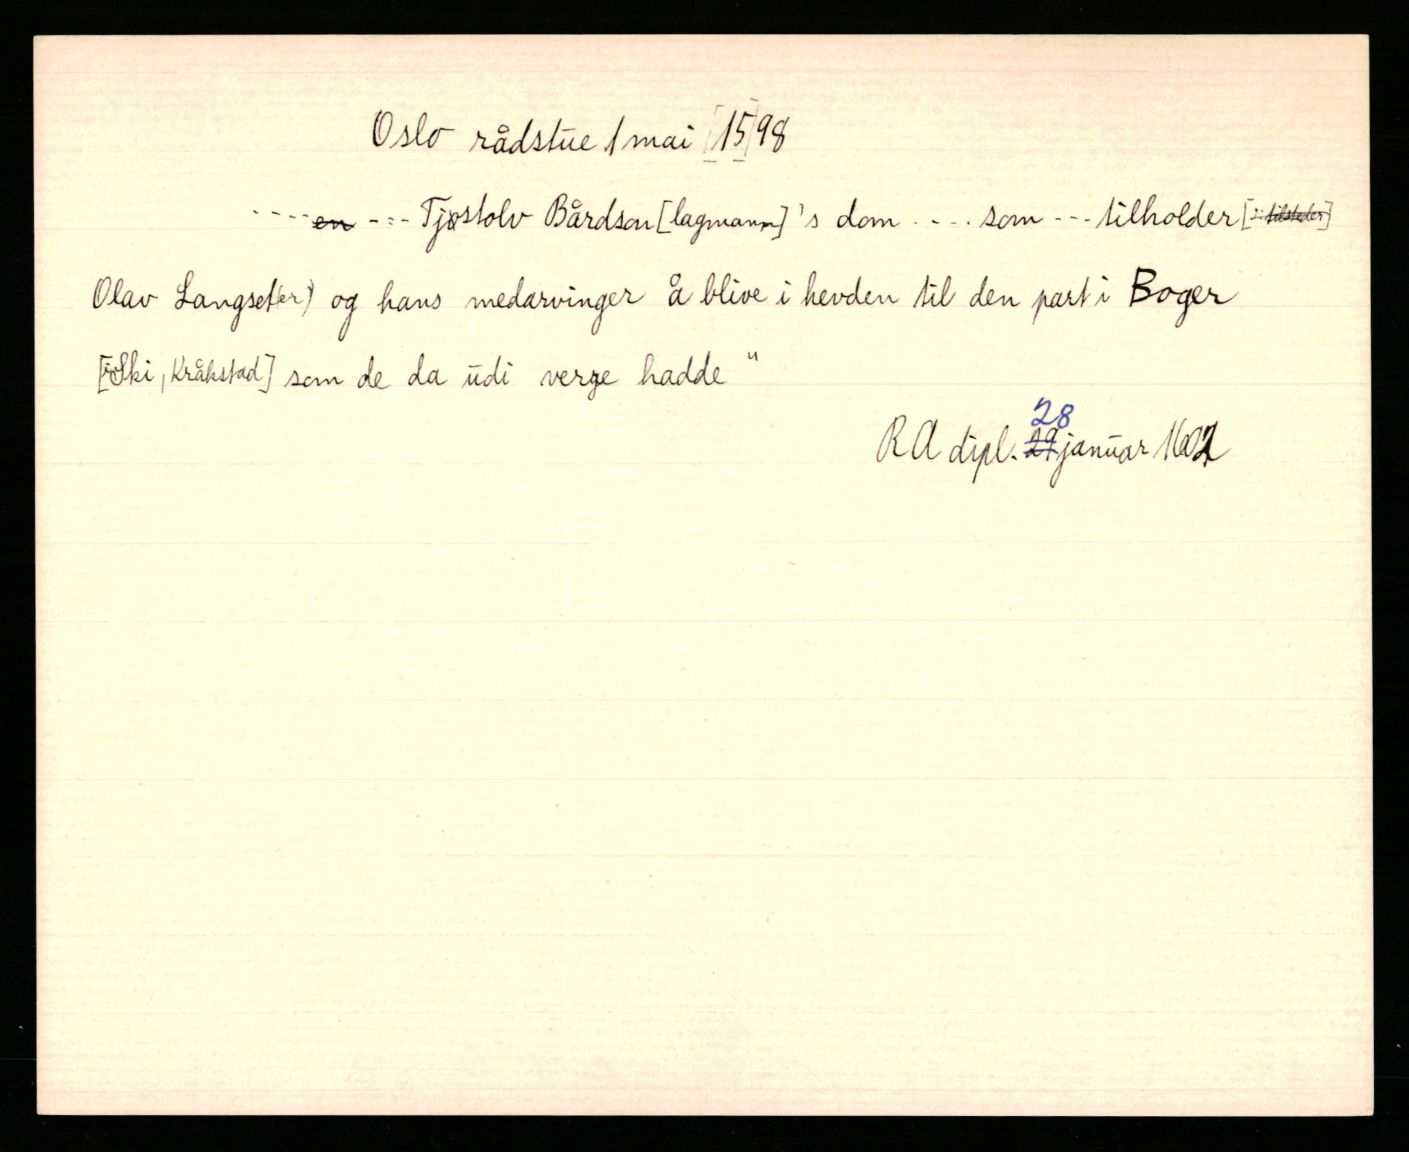 Oslo rådstue 1 mai [15]98
---- en --- Tjøstolv Bårdson [lagmann]'s dom .... som --- tilholder [: tilsteder]
Olav Langset(er) og hans medarvinger å blive i hevden til den part i Boger
[i Ski, Kråkstad] som de da udi verge hadde "
28
RA dipl. 29 januar 1602